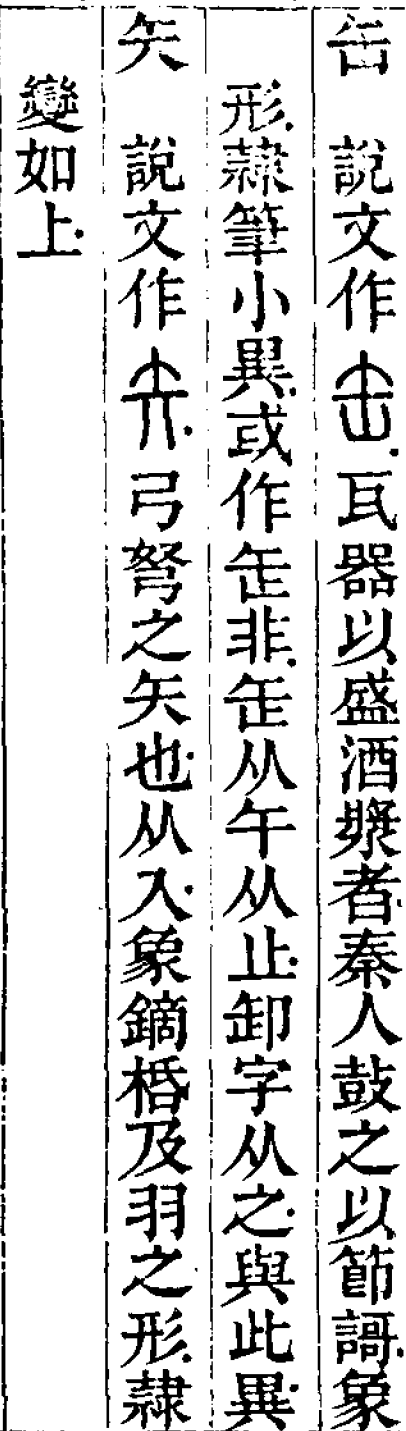 缶　說文作𦈢瓦器以盛酒漿者秦人鼓之以節謌象
形隸筆小異或作缷非缷从午从止卸字从之與此異
矢　說文作𠂕弓弩之矢也从入象鏑栝及羽之形隸
變如上